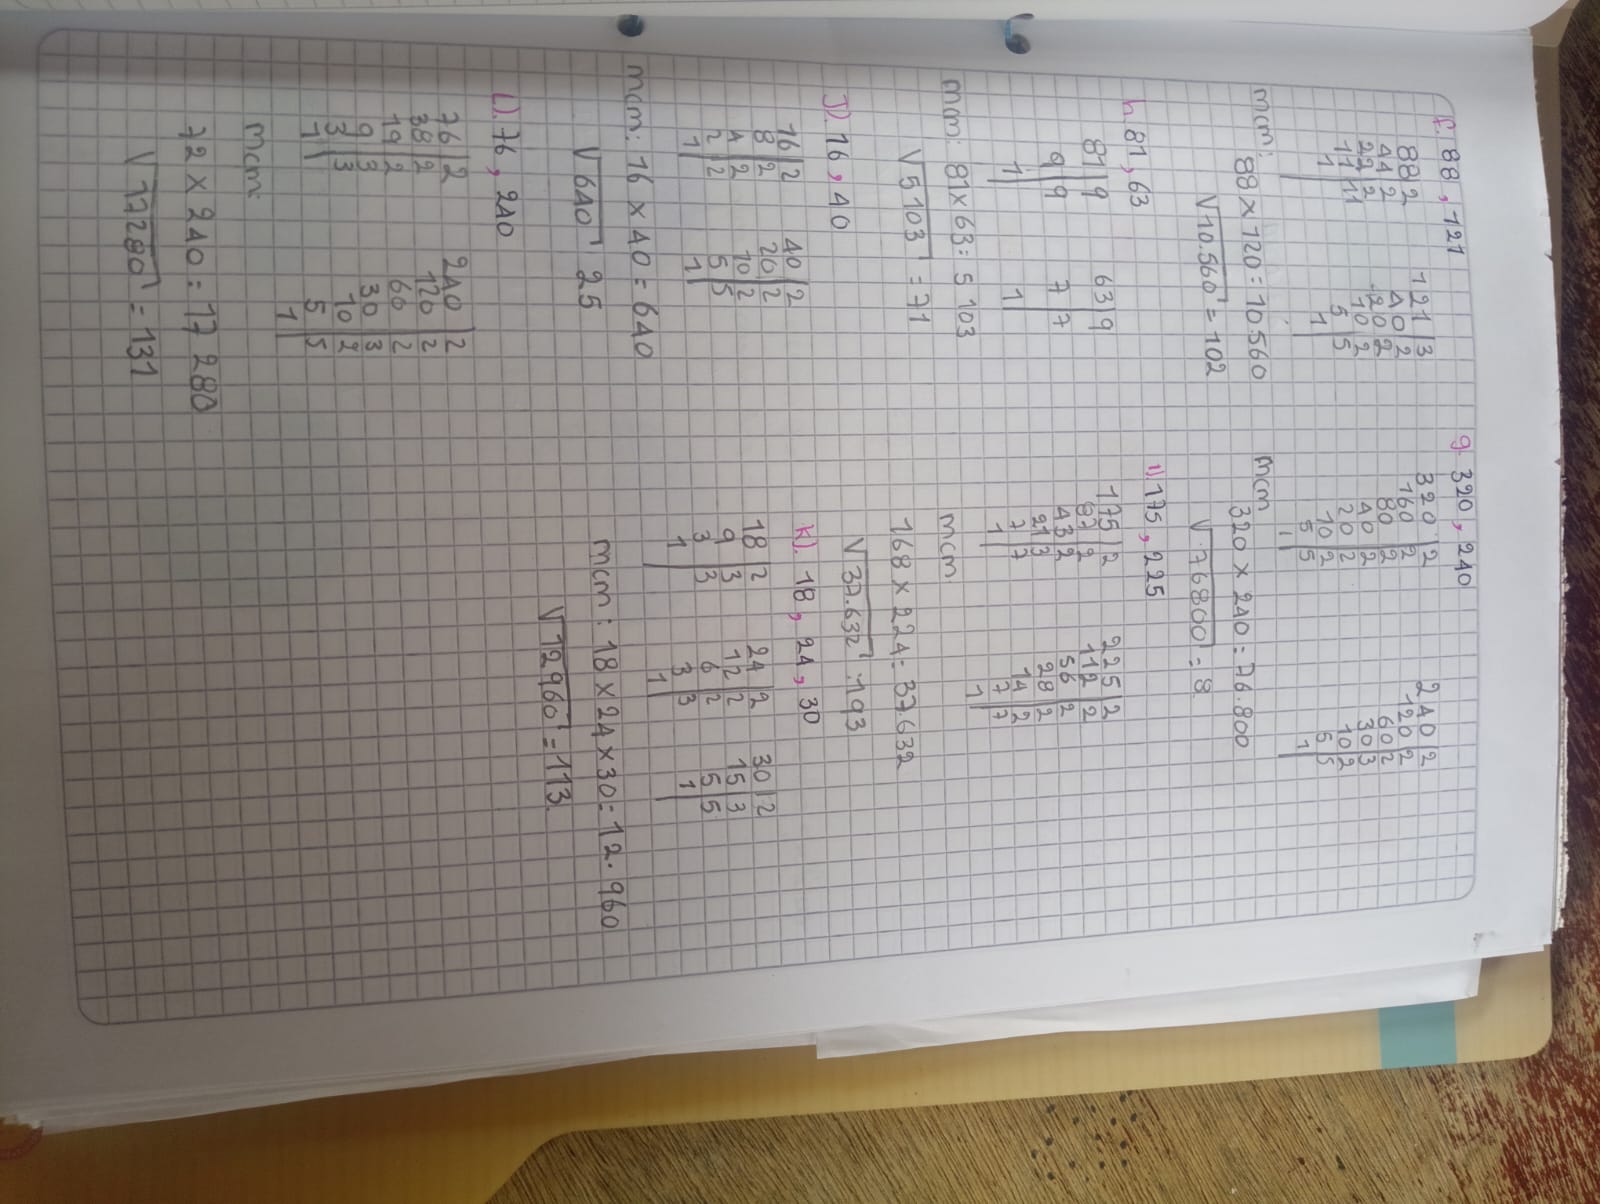 f. 88, 121
88 2 121 3
44 2 40 2
22 2 20 2
11 11 10 2
1 5 5
1
mcm:
88 × 120 = 10.560
√10.560 = 102
g. 320, 240
320 2 240 2
160 2 120 2
80 2 60 2
40 2 30 3
20 2 10 2
10 2 5 5
5 5 1
1
mcm
320 × 240 = 76.800
√76800 = 8
h 81, 63
81 9 63 9
9 9 7 7
1 1
mcm: 81 × 63 = 5 103
√5103 = 71
i) 175, 225
175 2 225 2
87 2 112 2
43 2 56 2
21 3 28 2
7 7 14 2
1 7 7
1
mcm
168 × 224 = 37.632
√37.632 : 193
J). 16, 40
16 2 40 2
8 2 20 2
4 2 10 2
2 2 5 5
1 1
mcm: 16 × 40 = 640
√640 25
K). 18, 24, 30
18 2 24 2 30 2
9 3 12 2 15 3
3 3 6 2 5 5
1 3 3 1
1
mcm: 18 × 24 × 30 = 12.960
√12960 = 113
L). 76, 240
76 2 240 2
38 2 120 2
19 2 60 2
9 3 30 3
3 3 10 2
1 5 5
1
mcm:
72 × 240 = 17 280
√17280 = 131